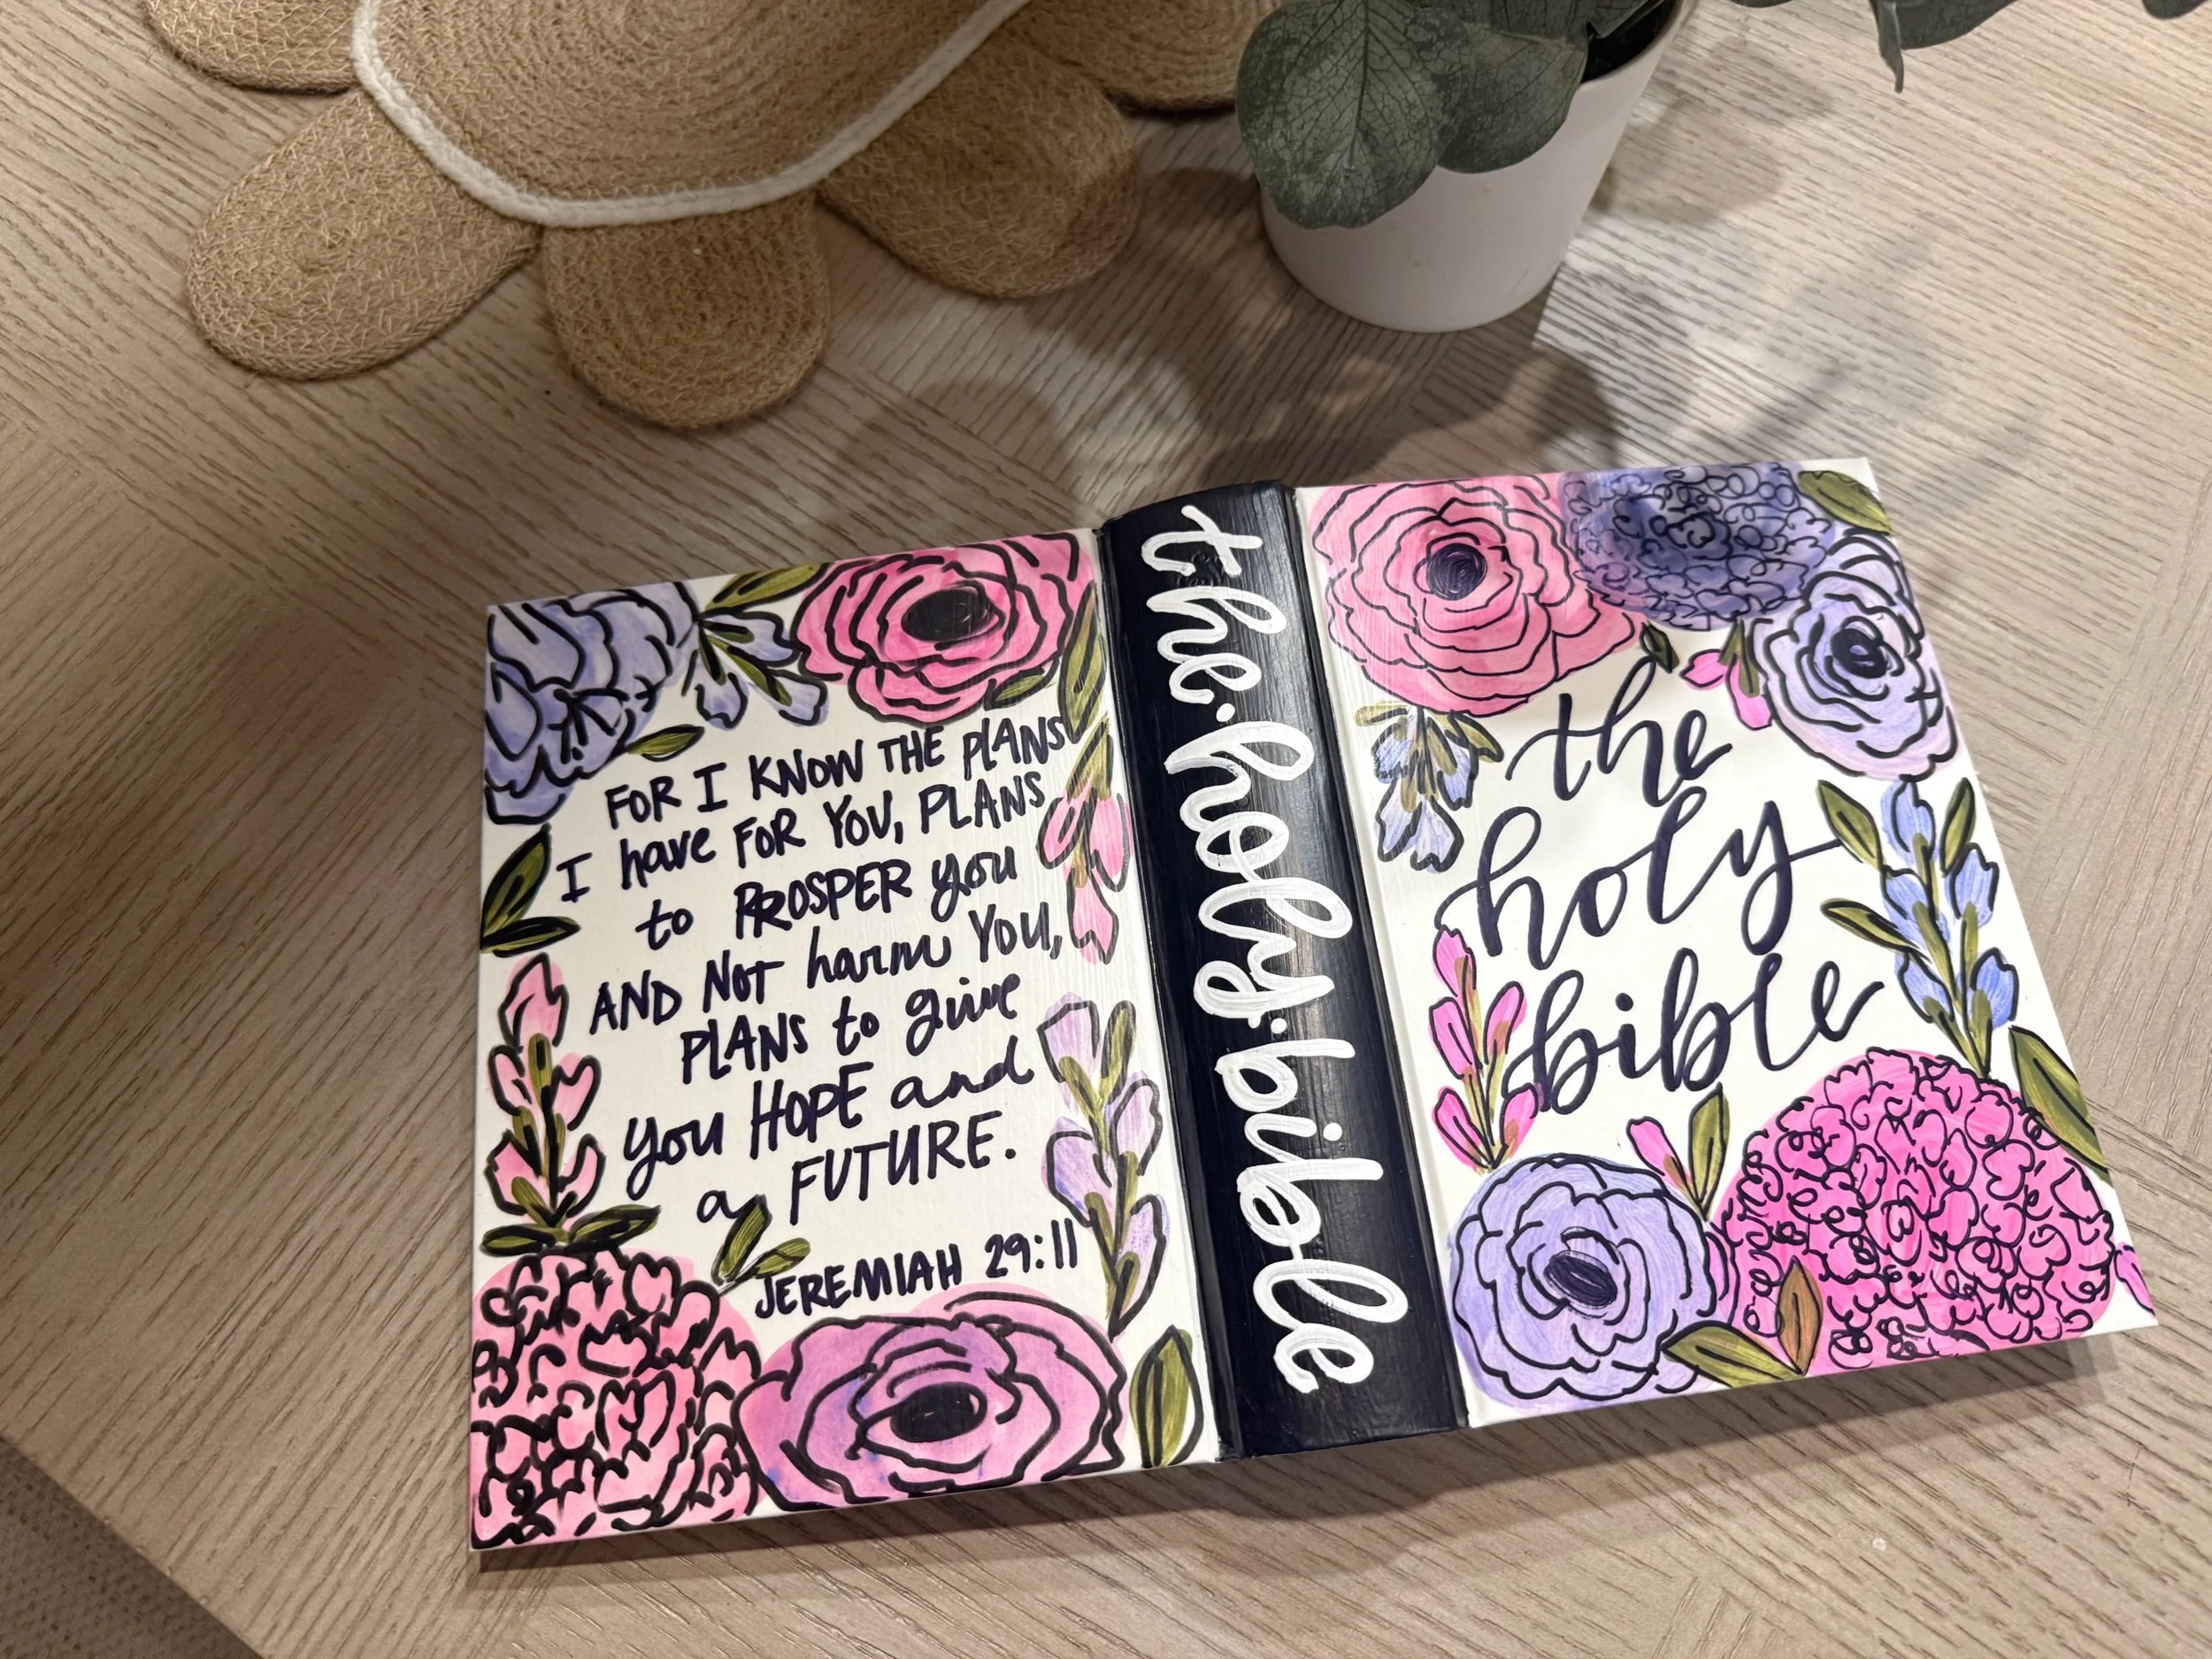 FOR I KNOW THE PLANS
I have FOR YOU, PLANS
to PROSPER you
AND NOT harm YOU,
PLANS to give
you HOPE and
a FUTURE.
JEREMIAH 29:11
the·holy·bible
the
holy
bible